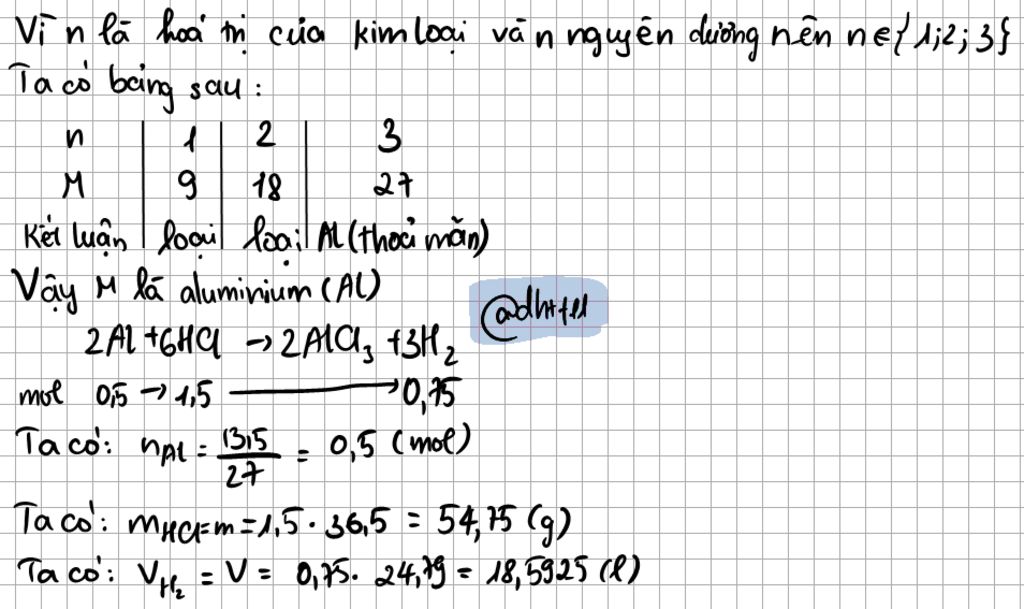 Vì n là hoá trị của kim loại và n nguyên dương nên n∈{1;2;3}
Ta có bảng sau:
n | 1 | 2 | 3
M | 9 | 18 | 27
Kết luận | loại | loại | Al (thoả mãn)
Vậy M là aluminium (Al)
2Al + 6HCl → 2AlCl₃ + 3H₂
mol 0,5 → 1,5 → 0,75
Ta có: nAl = 13,5/27 = 0,5 (mol)
Ta có: mHCl = m = 1,5 . 36,5 = 54,75 (g)
Ta có: VH₂ = V = 0,75 . 24,79 = 18,5925 (l)